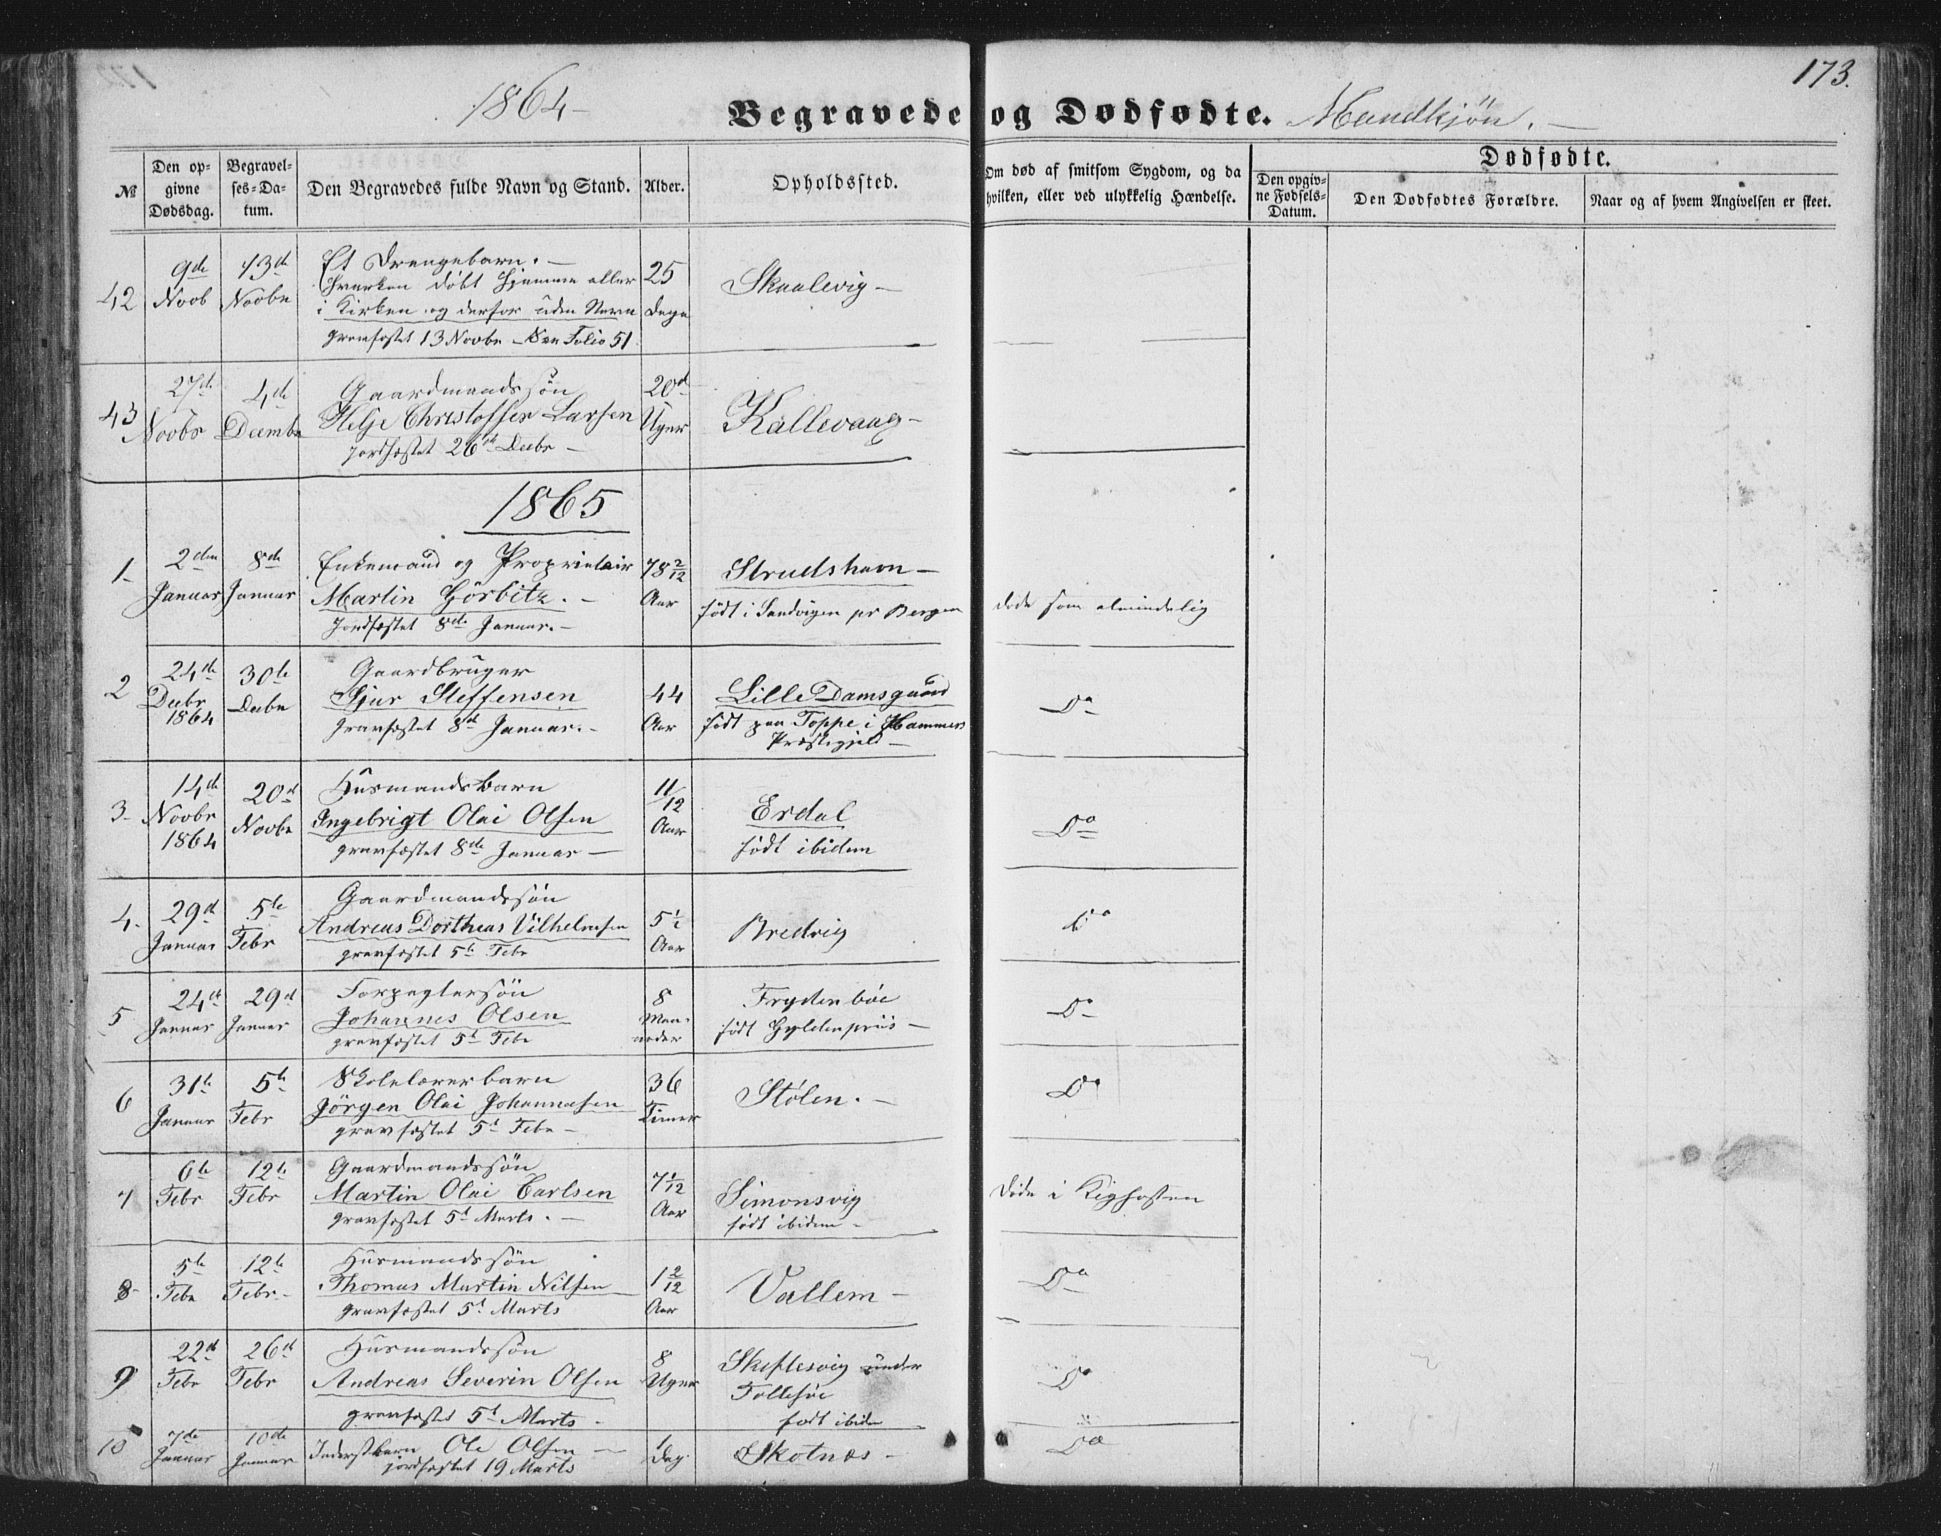 173.
1864
Begravede og Dødfødte. Mandkjøn.
№
Den opgivne Dødsdag.
Begravelses-Datum.
Den Begravedes fulde Navn og Stand.
Alder.
Opholdssted.
Om død af smitsom Sygdom, og da hvilken, eller ved ulykkelig Hændelse.
Dødfødte.
Den opgivne Fødsels-Datum.
Den Dødfødtes Forældre.
Naar og af hvem Angivelsen er skeet.
42 9de Novb 13de Novbr Et Drengebarn. 25 Dage Skaalevig
hverken døbt hjemme eller
i Kirken og derfor uden Navn
gravfæstet 13 Novbr Folio 51
43 27de Novbr 4de Decembr Gaardmandssøn 20 Uger Kallevaag
Helje Christoffer Larsen
jordfæstet 26de Decbr
1865
1 2den Januar 8de Januar Enkemand og Proprietair 78 2/12 Aar Strudshavn
Martin Hörbitz. født i Sandvigen pr Bergen døde som almindelig
Jordfæstet 8de Januar.
2 24de Decbr 1864 30te Decbr Gaardbruger 44 Aar Lille Damsgaard Do
Sjur Steffensen født paa Toppe i Hammers
gravfæstet 8de Januar. Præstegjeld
3 14de Novbr 1864 20de Novbr Huusmandsbarn 11/12 Aar Erdal Do
Ingebrigt Olai Olsen født ibidem
gravfæstet 8de Januar
4. 29de Januar 5te Febr Gaardmandssøn 5 1/2 Aar Bredvig Do
Andreas Dortheas Vilhelmsen
gravfæstet 5te Febr
5 24de Januar 29de Januar Forpagtersøn 8 Maaneder Frydenbøe Do
Johannes Olsen født Gyldenpriis
gravfæstet 5te Febr
6 31te Januar 5te Febr Skolelærerbarn 36 Timer Stølen. Do
Jörgen Olai Johannesen
gravfæstet 5te Febr
7 6te Febr 12te Febr Gaardmandssøn 7 1/12 Aar Simonsvig Døde i Kighosten
Martin Olai Carlsen født ibidem
gravfæstet 5te Marts.
8 5te Febr 12te Febr Huusmandssøn 1 2/12 Aar Vallem Do
Thomas Martin Nilsen
gravfæstet 5te Marts
9 22de Febr 26de Febr Huusmandssøn 8 Uger Skiftesvig under Do
Andreas Severin Olsen Follesøe
gravfæstet 5te Marts født ibidem
10 7de Januar 10de Januar Inderstbarn Ole Olsen 1 Dag Skotnæs Do
jordfæstet 19 Marts